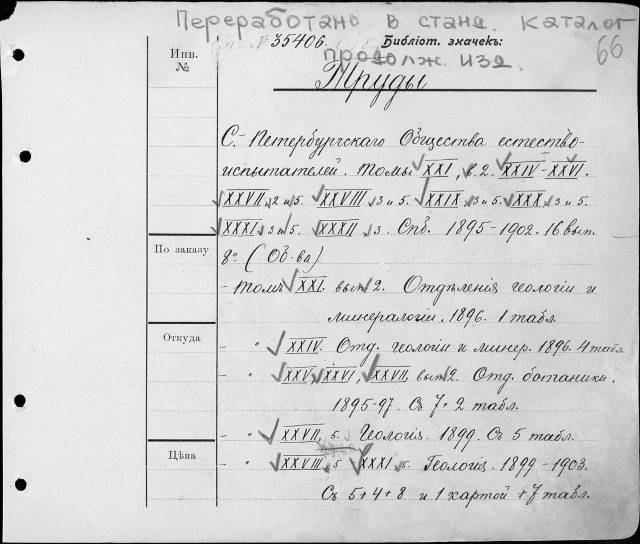 Переработано в станд. каталог
35406. Библіот. значекъ: 66
Инв. №
продолж. изд.
Труды
С.-Петербургскаго Общества естество-
испытателей. Томы XXI, в. 2. XXIV-XXVI.
XXVII, 2 и 5. XXVIII, 3 и 5. XXIX, 3 и 5. XXX, 3 и 5.
XXXI, 3 и 5. XXXII, 3. Спб. 1895-1902. 16 вып.
По заказу
8° (Об-ва)
- Томъ XXI. вып. 2. Отдѣленія геологіи и
минералогіи. 1896. 1 табл.
Откуда
- " XXIV. Отд. геологіи и минер. 1896. 4 табл.
- " XXV, XXVI, XXVII, вып 2. Отд. ботаники.
1895-97. Съ 7+2 табл.
- " XXVII, 5. Геологія. 1899. Съ 5 табл.
Цѣна
- " XXVIII, 5 XXXI, 5. Геологія. 1899-1903.
Съ 5+4+8 и 1 картой +7 табл.